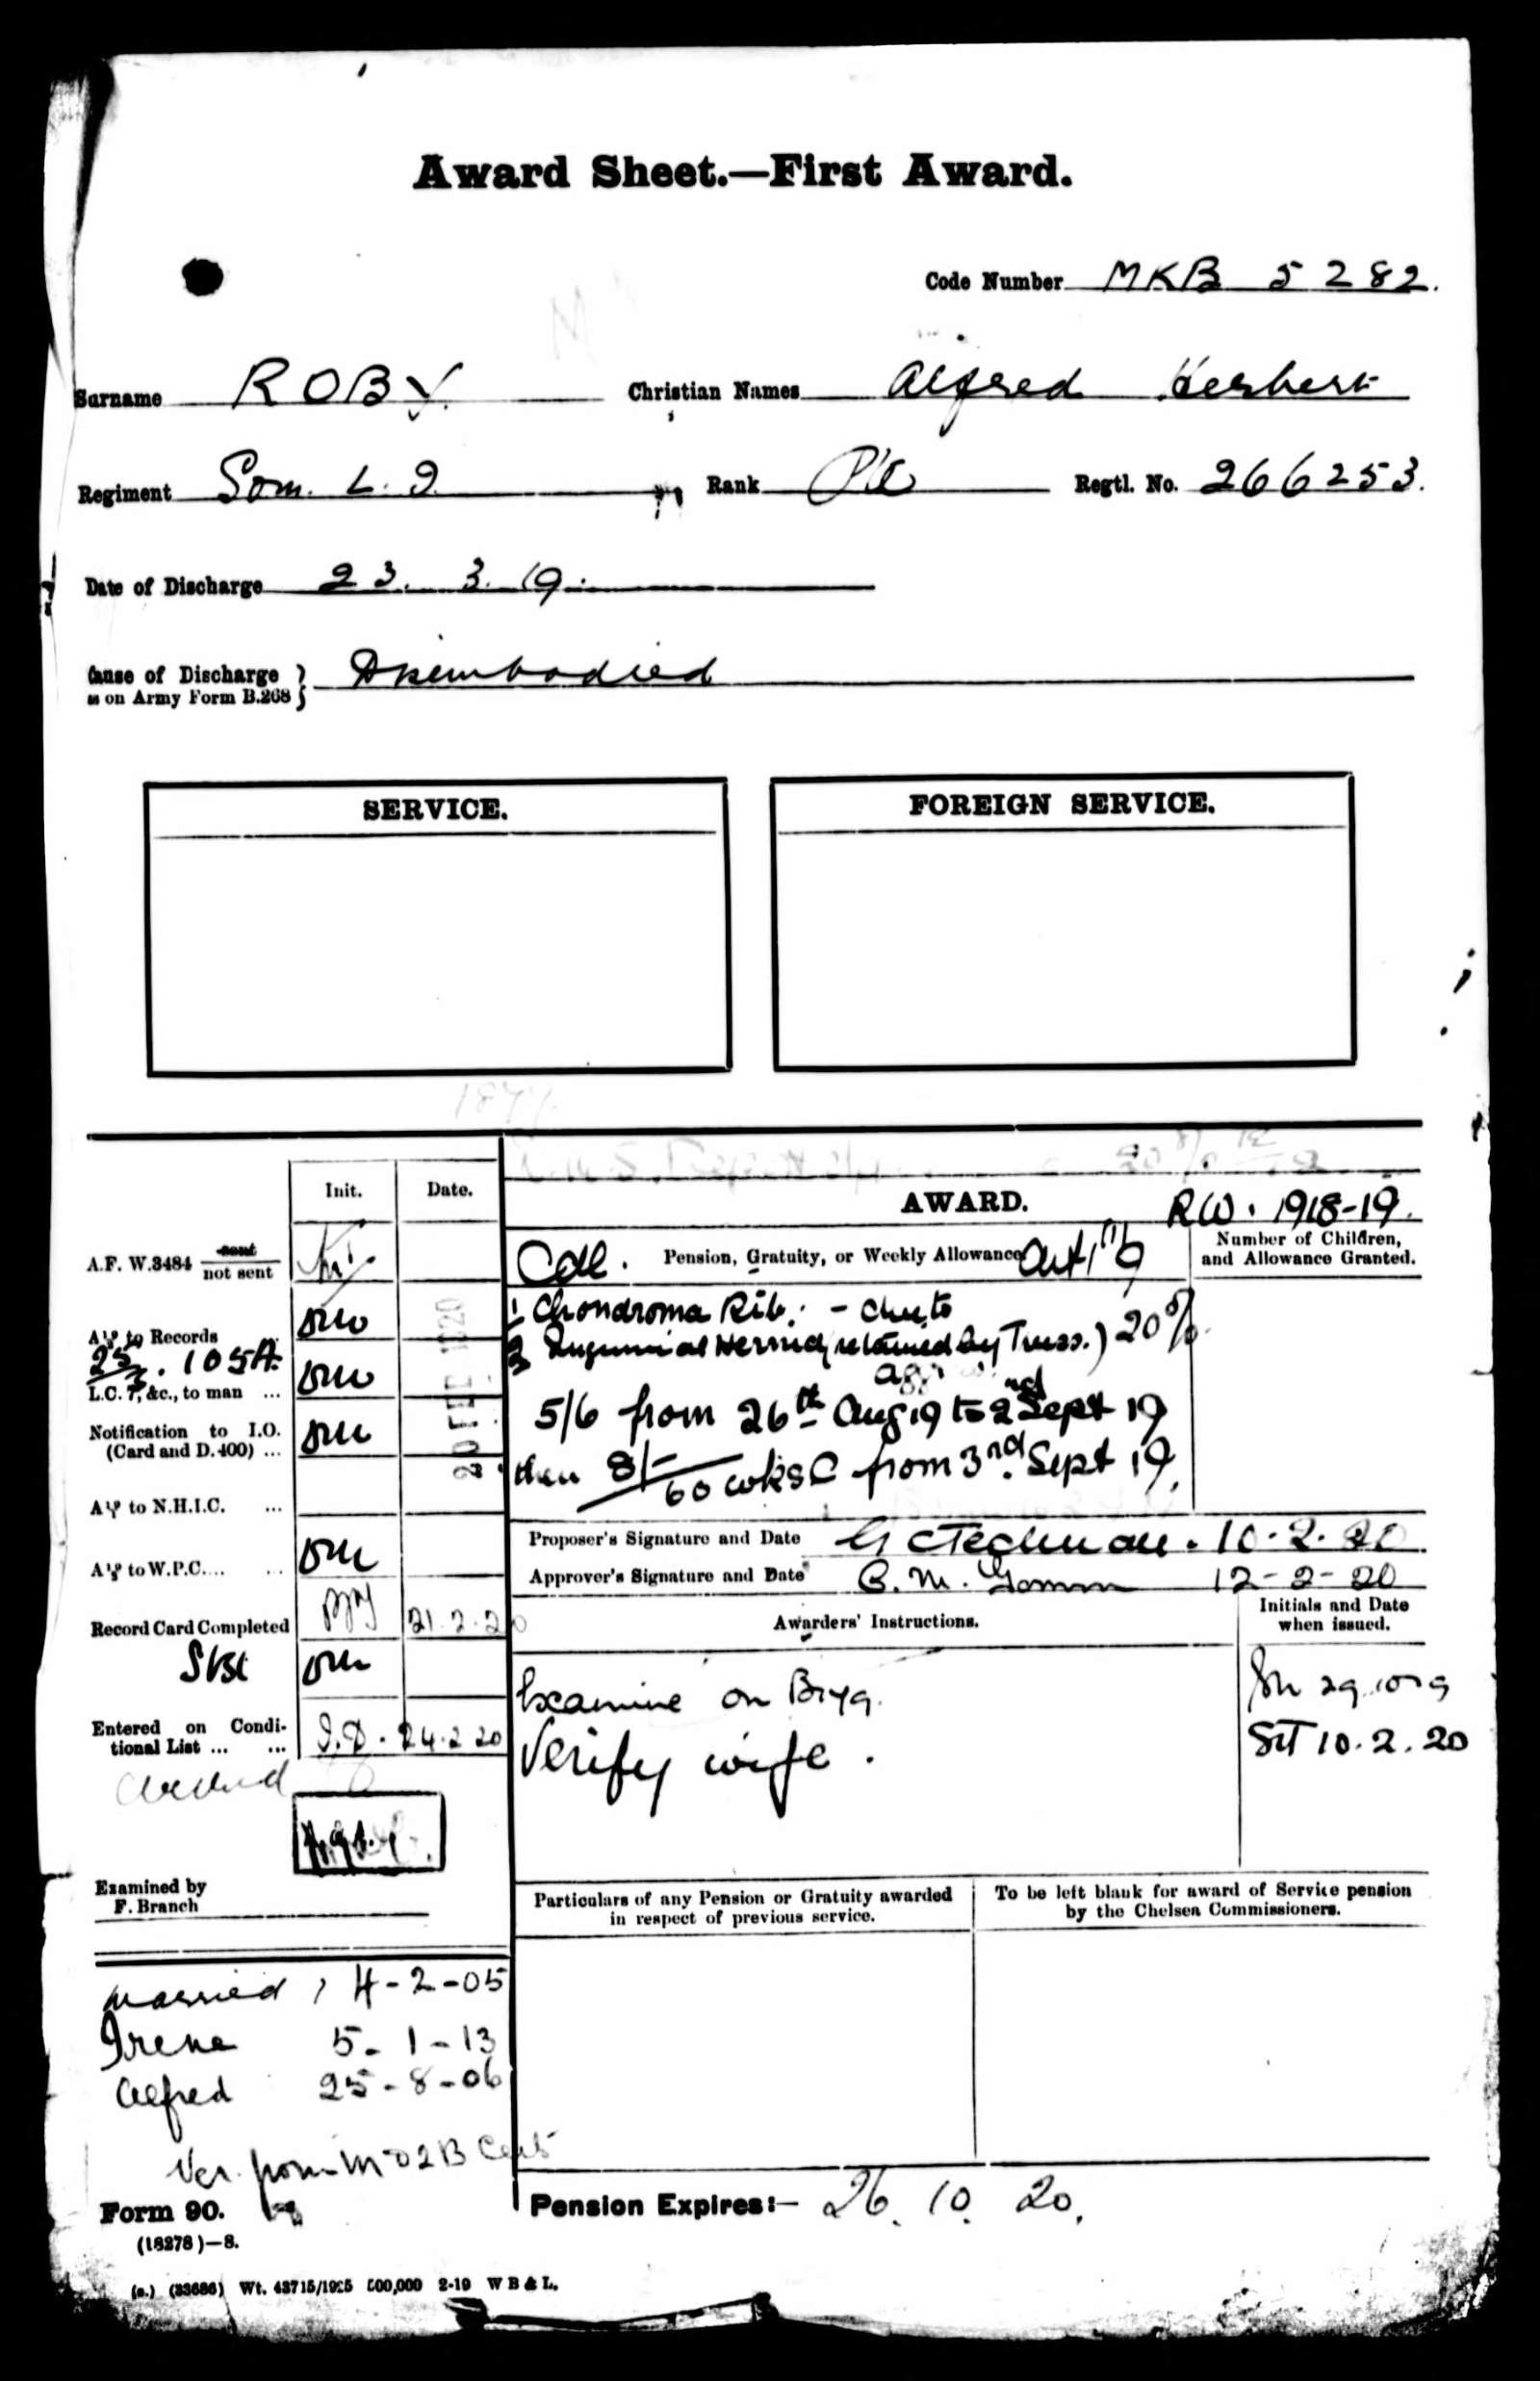 Award Sheet.—First Award.
Code Number MKB 5282.
Surname ROBY. Christian Names Alfred Herbert
Regiment Som. L. I. Rank Pte Regtl. No. 266253.
Date of Discharge 23. 3. 19.
Cause of Discharge
as on Army Form B.268 } Disembodied
SERVICE.
FOREIGN SERVICE.
Init. Date.
A.F. W.3484 sent
not sent
to Records
105A.
L.C. 7, &c., to man ...
Notification to I.O.
(Card and D.400) ...
to N.H.I.C. ...
to W.P.C....
Record Card Completed 21.2.20
Entered on Condi-
tional List ... ... 24.2.20
Examined by
F. Branch
married, 4-2-05
Irene 5-1-13
Alfred 25-8-06
Ver. from M O 2 B Cert
Form 90.
(18278)—8.
AWARD. RW. 1918-19.
Cdl. Pension, Gratuity, or Weekly Allowance Art 1
Number of Children,
and Allowance Granted.
1 Chondroma Rib. -
2 Inguinal Hernia (retained by Truss.) 20%
agg
5/6 from 26th Aug 19 to 2nd Sept 19
then 8/- 60 wks C from 3rd Sept 19.
Proposer's Signature and Date 10.2.20
Approver's Signature and Date 12-2-20
Awarders' Instructions.
Initials and Date
when issued.
Examine on
Verify wife.
10.2.20
Particulars of any Pension or Gratuity awarded
in respect of previous service.
To be left blank for award of Service pension
by the Chelsea Commissioners.
Pension Expires:— 26. 10. 20.
(33686) 500,000 2-19 W B & L.